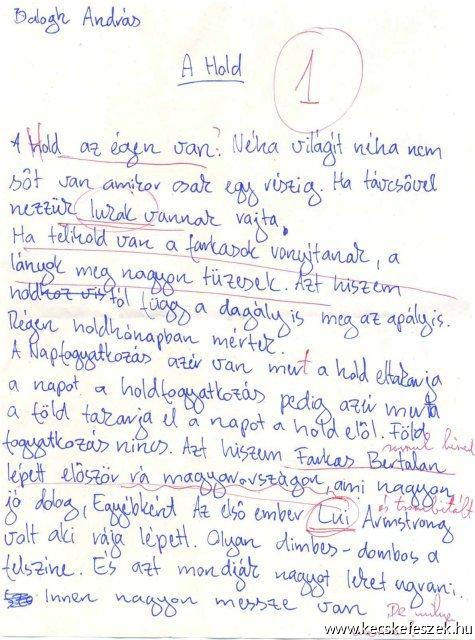 Balogh András
A Hold
1
A Hold az égen van? Néha világít néha nem
sőt van amikor csak egy részig. Ha távcsővel
nezzük lukak vannak rajta.
Ha telihold van a farkasok vonyitanak, a
lányok meg nagyon tüzesek. Azt hiszem
függ a dagály is meg az apály is.
Régen holdhónapban mértek.
A Napfogyatkozás azér van mert a hold eltakarja
a napot a holdfogyatkozás pedig azér mert
a föld takarja el a napot a hold elől. Föld
fogyatkozás nincs. Azt hiszem Farkas Bertalan
lépett először rá magyarországon, ami nagyon
jó dolog, Egyébként Az első ember Lui Armstrong
volt aki rája lépett. Olyan dimbes-dombos a
felszine. És azt mondják nagyot lehet ugrani..
Innen nagyon messze van De
www.kecskefeszek.hu